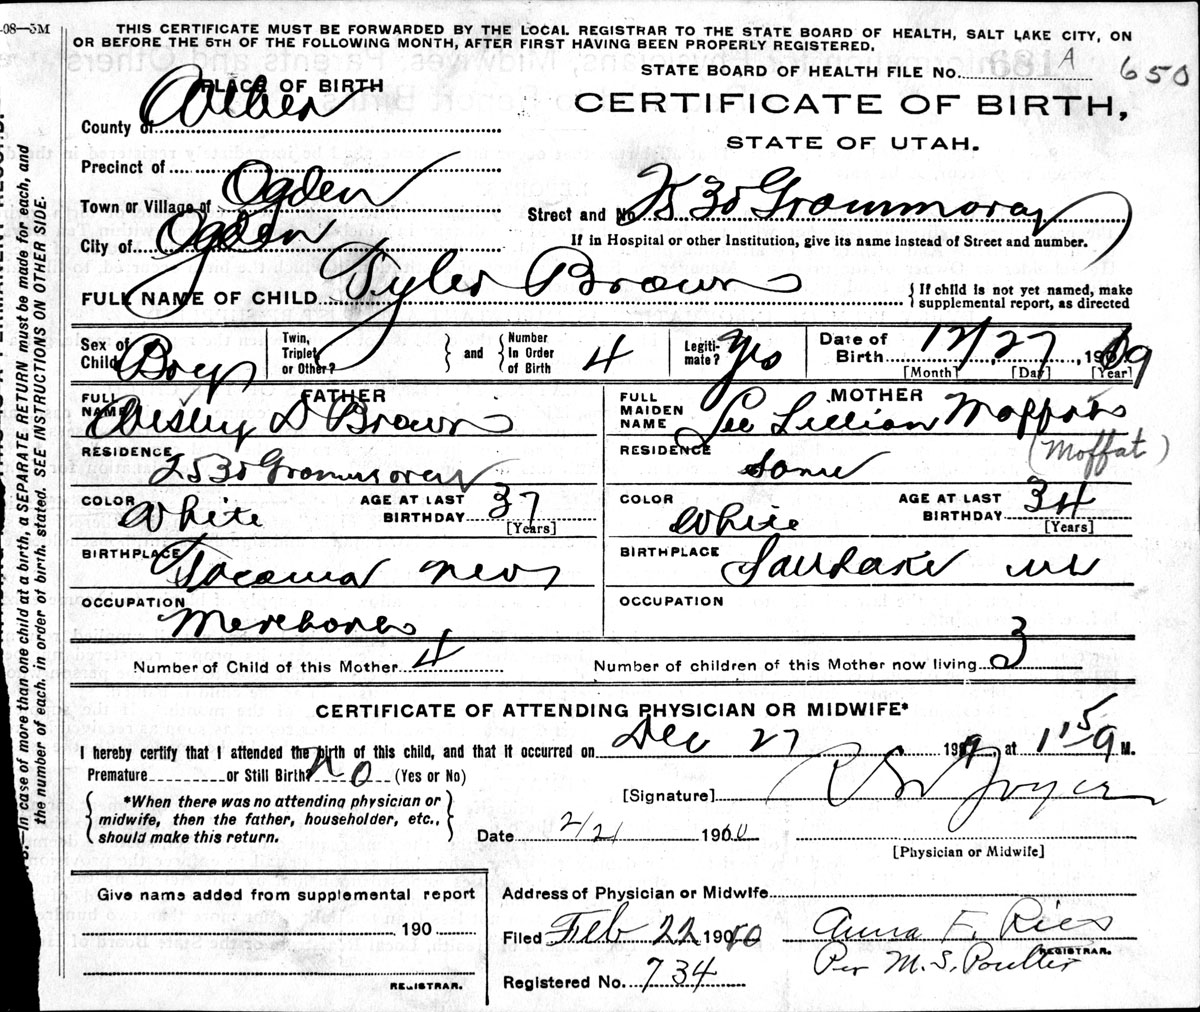 -08—3M
THIS CERTIFICATE MUST BE FORWARDED BY THE LOCAL REGISTRAR TO THE STATE BOARD OF HEALTH, SALT LAKE CITY, ON
OR BEFORE THE 5TH OF THE FOLLOWING MONTH, AFTER FIRST HAVING BEEN PROPERLY REGISTERED.
STATE BOARD OF HEALTH FILE No. A 650
PLACE OF BIRTH
CERTIFICATE OF BIRTH,
STATE OF UTAH.
County of Weber
Precinct of
Town or Village of Ogden
Street and No. 2530
If in Hospital or other Institution, give its name instead of Street and number.
City of Ogden
FULL NAME OF CHILD Tyler Brown
{ If child is not yet named, make supplemental report, as directed
Sex of Child Boy
Twin, Triplet or Other? } and { Number In Order of Birth 4
Legitimate? Yes
Date of Birth 12/27, 1909
[Month] [Day] [Year]
FATHER
FULL NAME Wesley D Brown
RESIDENCE 2530
COLOR White
AGE AT LAST BIRTHDAY 37 [Years]
BIRTHPLACE
OCCUPATION
MOTHER
FULL MAIDEN NAME Lillian
(Moffat)
RESIDENCE Same
COLOR White
AGE AT LAST BIRTHDAY 34 [Years]
BIRTHPLACE
OCCUPATION
Number of Child of this Mother 4
Number of children of this Mother now living 3
CERTIFICATE OF ATTENDING PHYSICIAN OR MIDWIFE*
I hereby certify that I attended the birth of this child, and that it occurred on Dec 27 1909 at 1 15 a M.
Premature or Still Birth? no (Yes or No)
{ *When there was no attending physician or midwife, then the father, householder, etc., should make this return. }
[Signature]
Date 2/21 1910
[Physician or Midwife]
Give name added from supplemental report
190
REGISTRAR.
Address of Physician or Midwife
Filed Feb 22 1910
Anna F. Ries
REGISTRAR.
Per M. S. Poulter
Registered No. 734
In case of more than one child at a birth, a SEPARATE RETURN must be made for each, and
the number of each, in order of birth, stated. SEE INSTRUCTIONS ON OTHER SIDE.